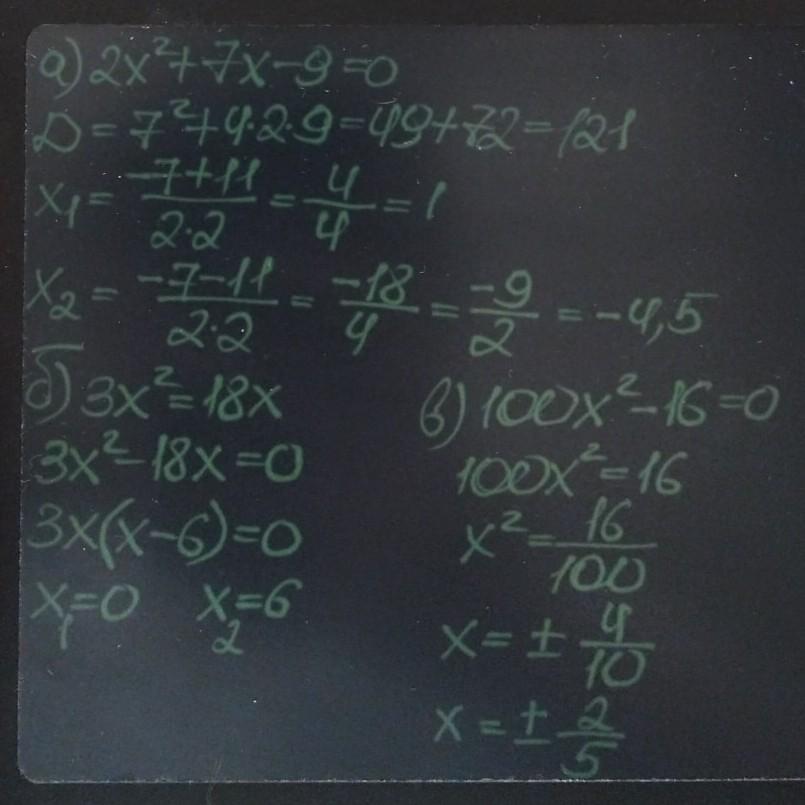 а) 2x²+7x-9=0
D=7²+4·2·9=49+72=121
x₁=\frac{-7+11}{2·2}=\frac{4}{4}=1
x₂=\frac{-7-11}{2·2}=\frac{-18}{4}=\frac{-9}{2}=-4,5
б) 3x²=18x
3x²-18x=0
3x(x-6)=0
x₁=0 x₂=6
в) 100x²-16=0
100x²=16
x²=\frac{16}{100}
x=±\frac{4}{10}
x=±\frac{2}{5}